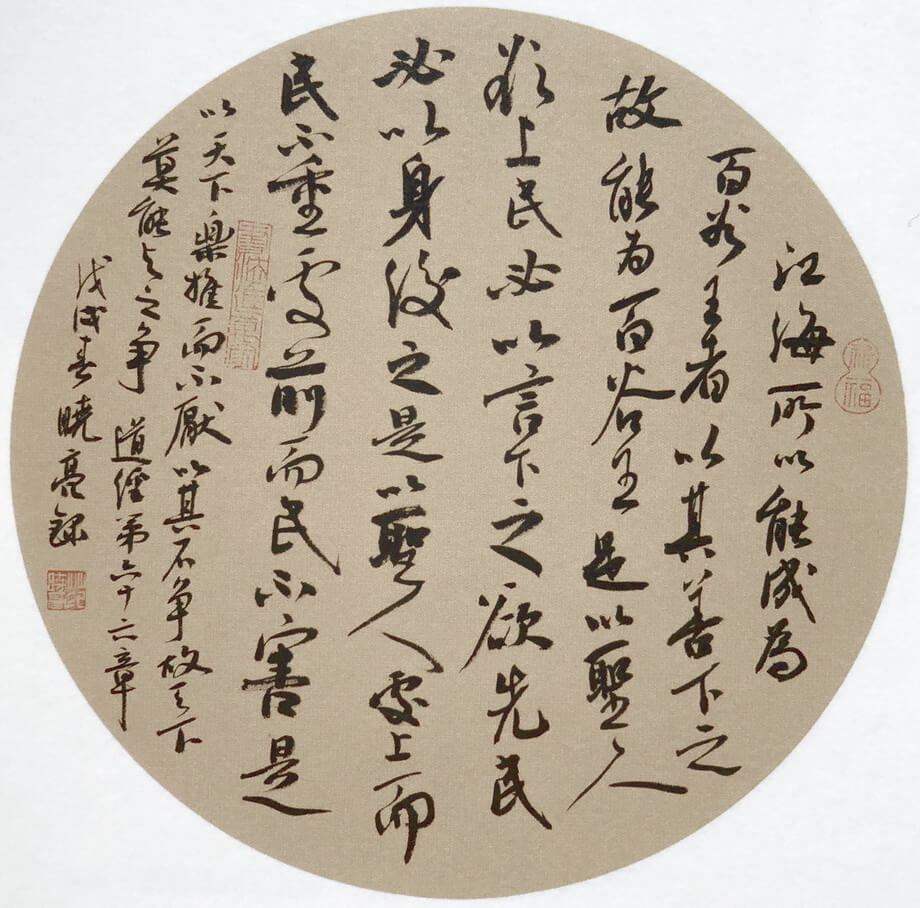 江海所以能成為
百谷王者以其善下之
故能为百谷王是以聖人
欲上民必以言下之欲先民
必以身後之是以聖人處上而
民不重處前而民不害是
以天下樂推而不厭以其不争故天下
莫能与之争 道經第六十六章
戊戌春曉亮録